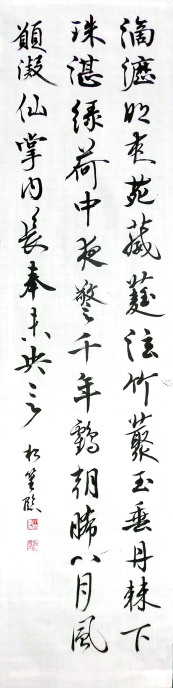 滴瀝明苑葳蕤泫竹叢玉垂丹棘下
珠湛綠荷中夜警千年鶴朝晞八月風
願凝仙掌內長奉未央宮
松